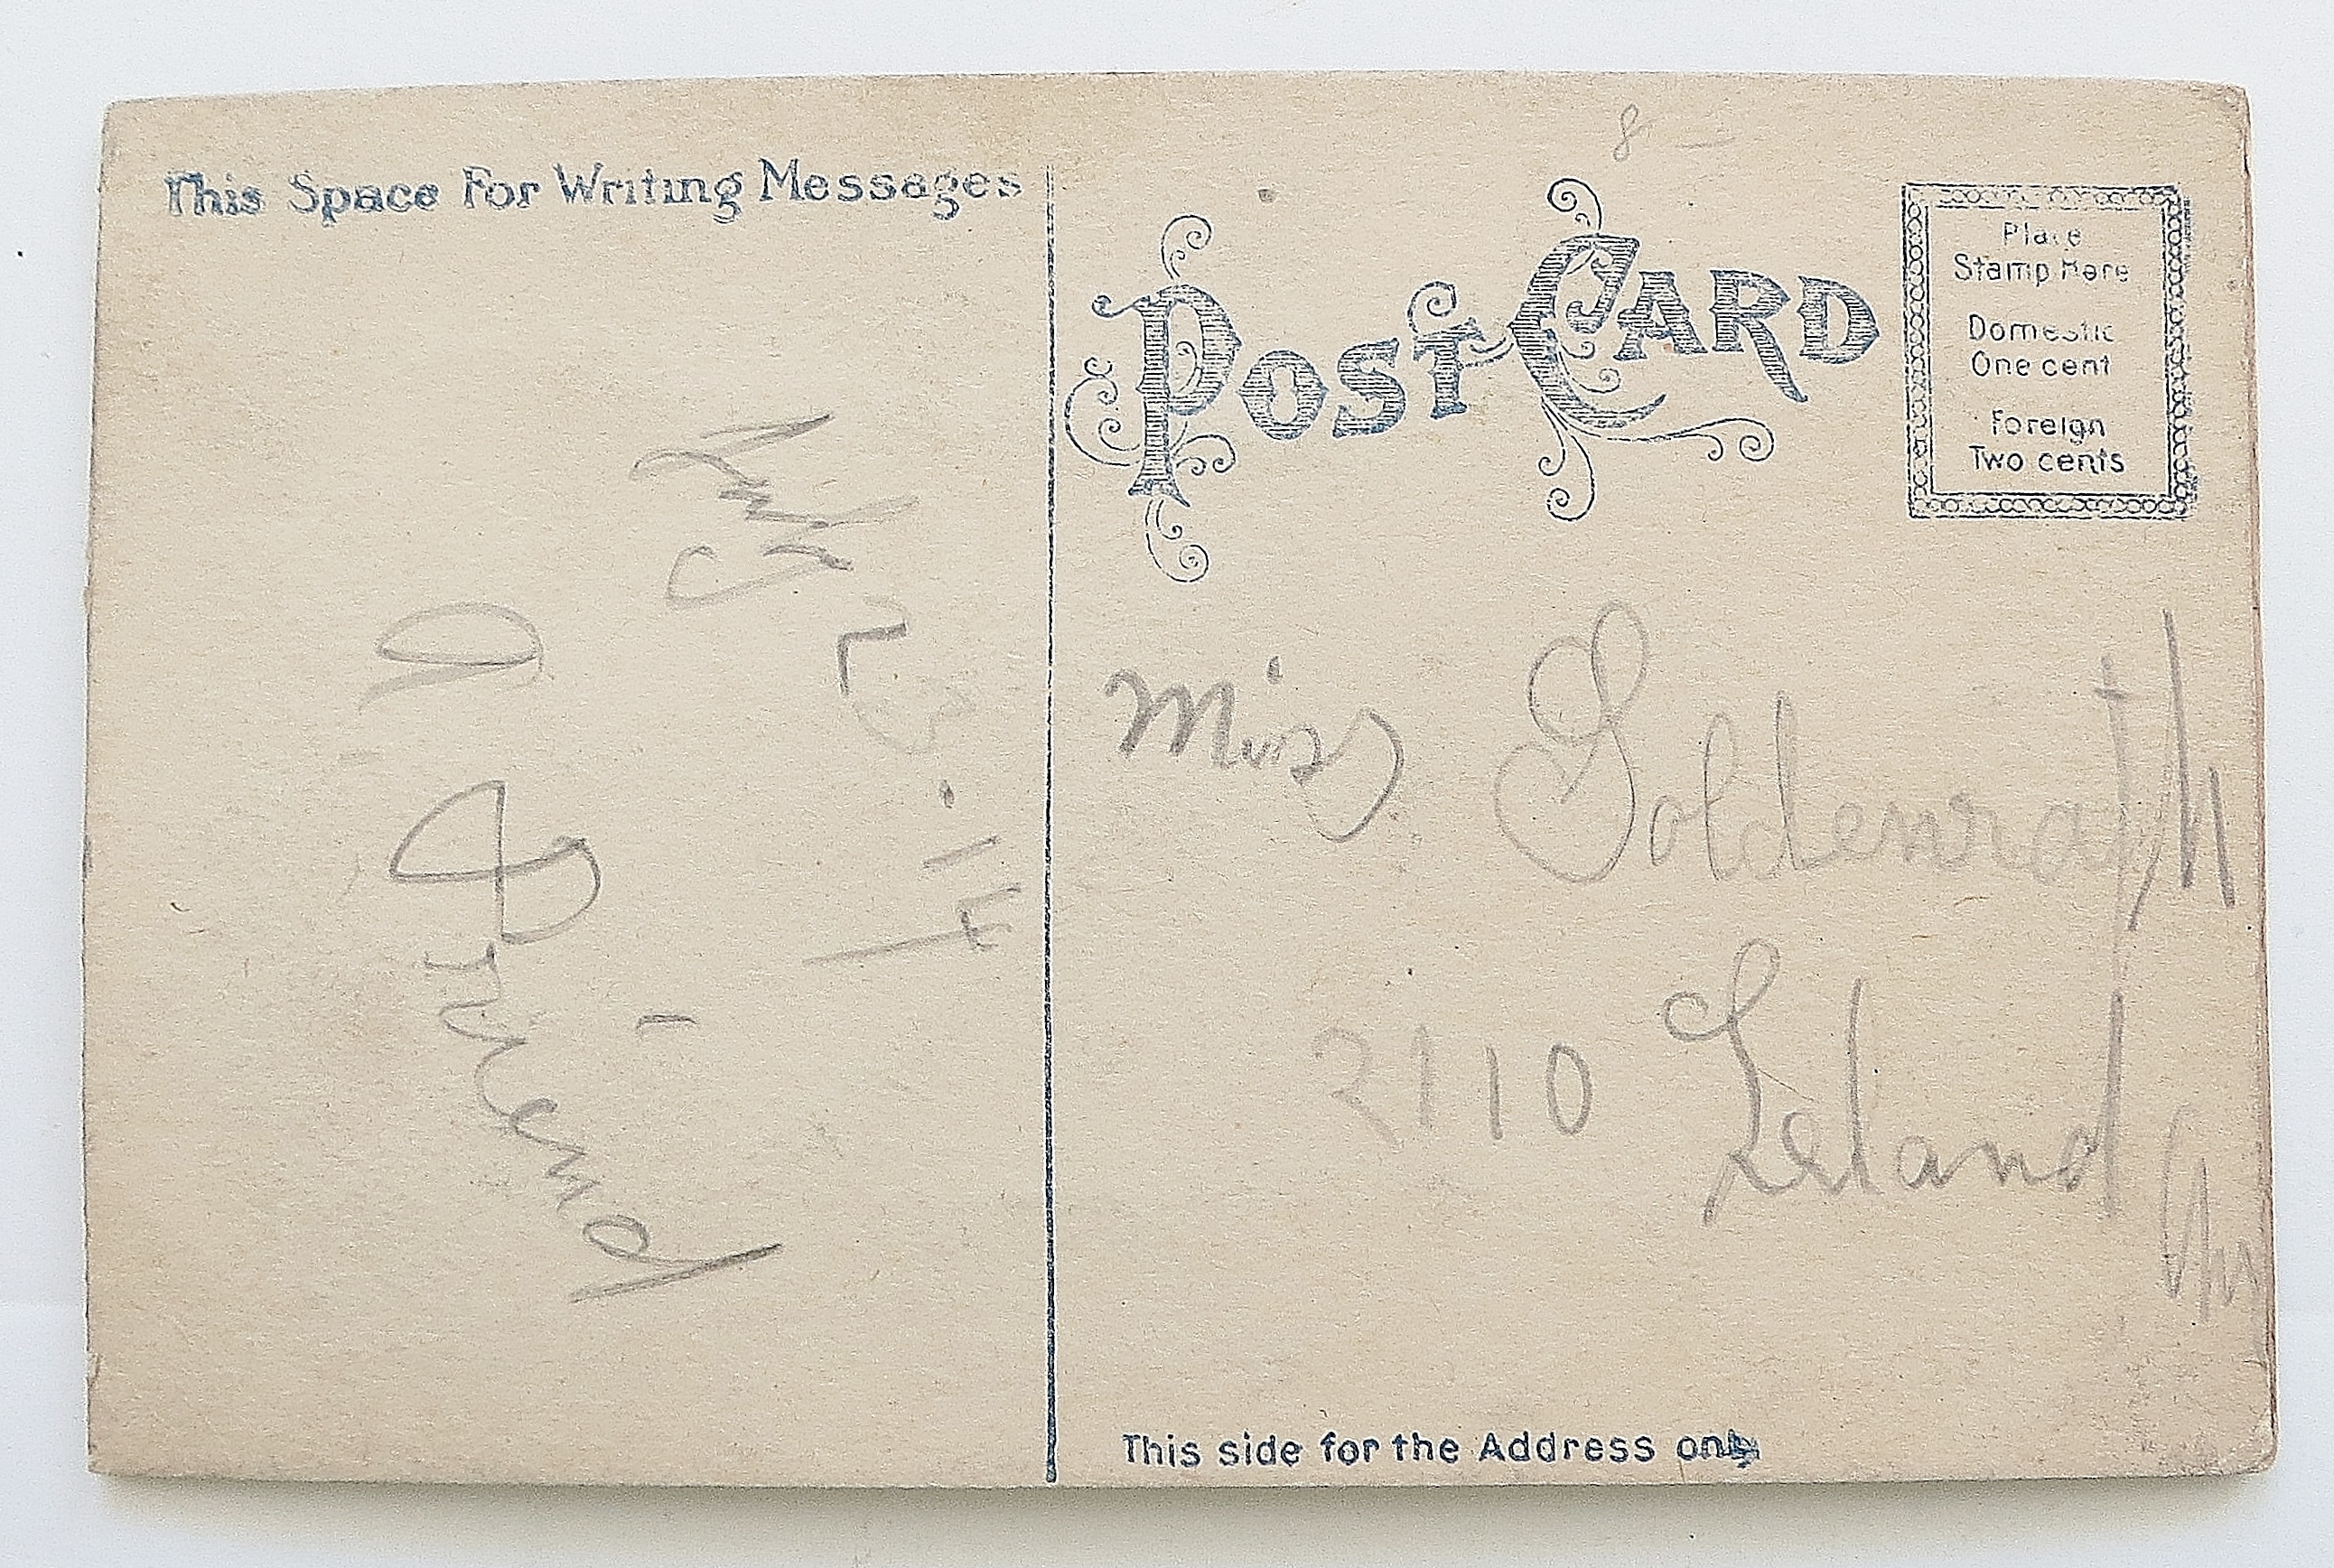 This Space For Writing Messages
8 –
POST CARD
Place
Stamp Here
Domestic
One cent
Foreign
Two cents
Friend
Miss Goldenrath
2110 Leland
This side for the Address only